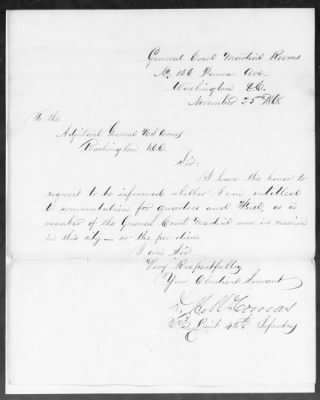 General Court Martial Rooms
No. 156 Penna Ave.
Washington D.C.
November 25th 186
To the
Adjutant General U.S. Army
Washington D.C.
Sir.
I have the honor to
request to be informed whether I am entitled
to commutation for quarters and Fuel, as a
member of the General Court Martial now in session
in this city — or the per diem.
I am Sir
Very Respectfully
Your Obedient Servant
McComas
2nd Lieut 45th Infantry